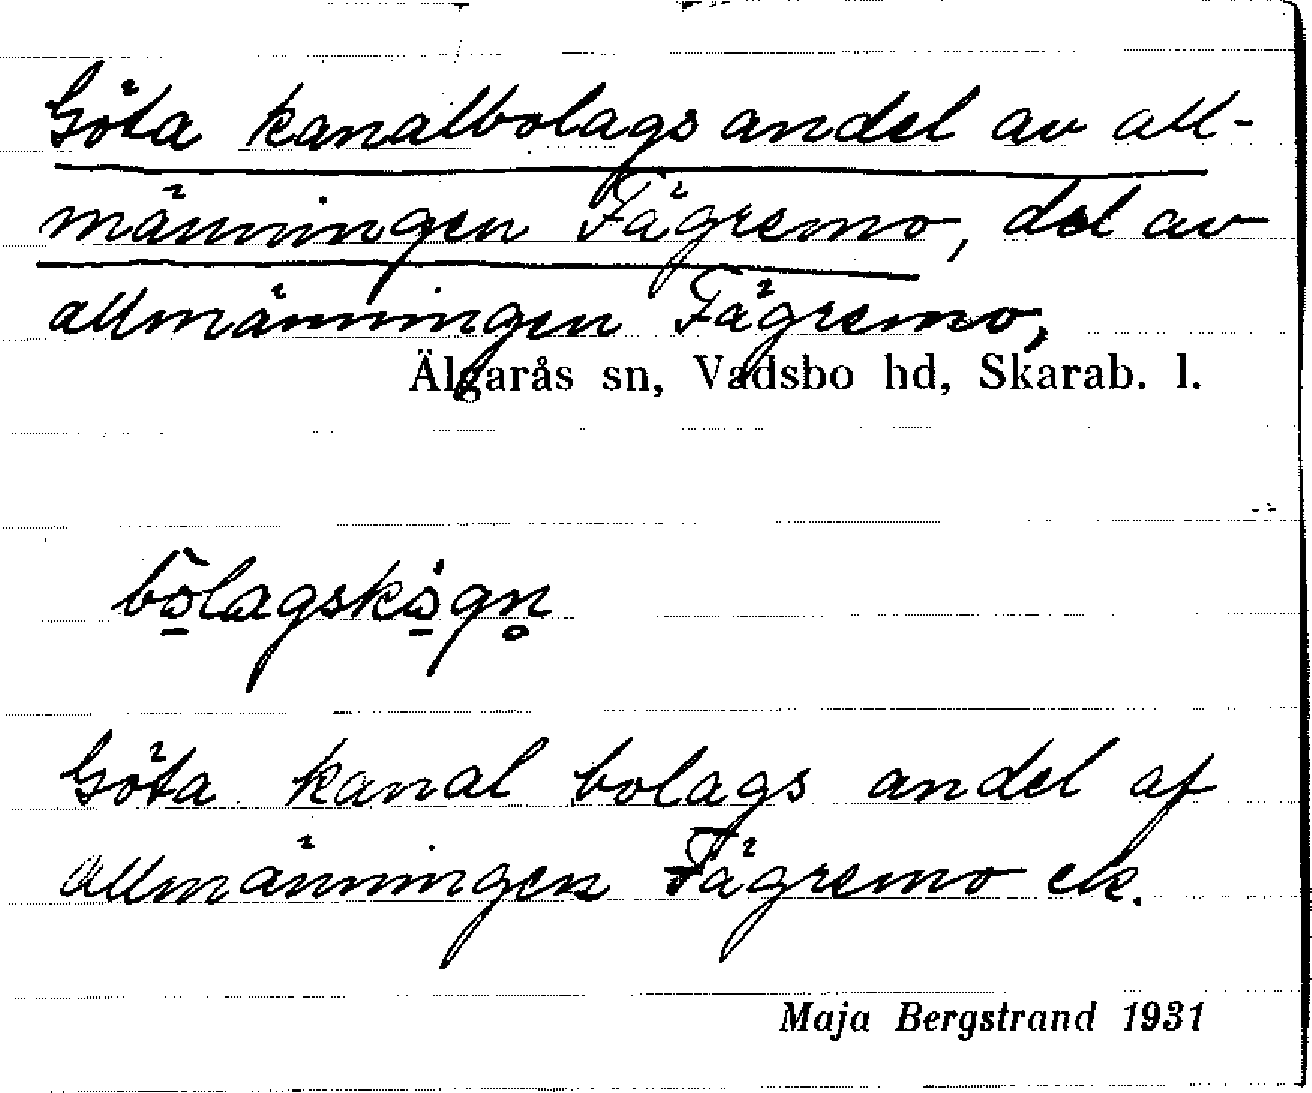 Göta kanalbolags andel av all-
männingen Fägremo, del av
allmänningen Fägremo,
Älgarås sn, Vadsbo hd, Skarab. l.
bo̲lagsko̲gn̥
Göta kanal bolags andel af
Allmänningen Fägremo ek.
Maja Bergstrand 1931